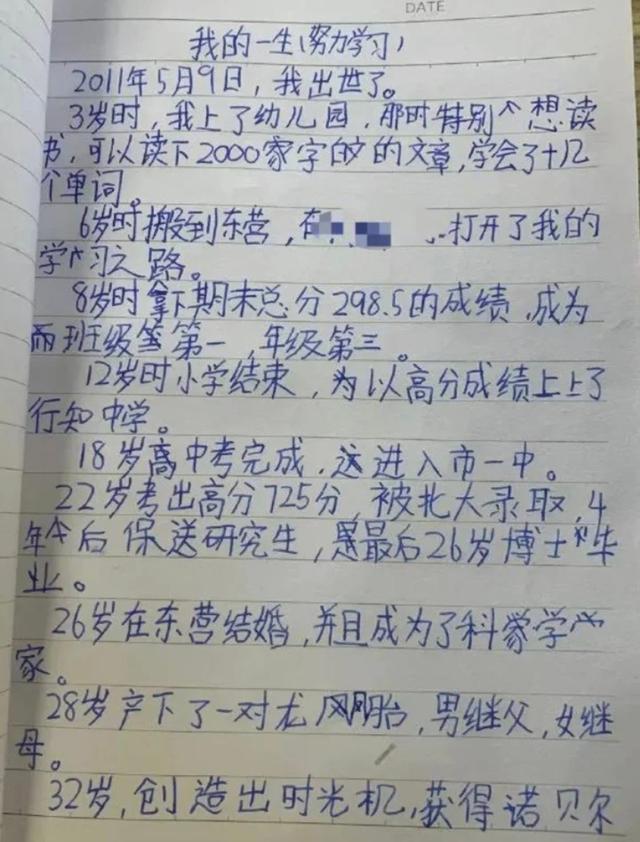 DATE
我的一生(努力学习)
2011年5月9日，我出世了。
3岁时，我上了幼儿园，那时特别个想读
书，可以读下2000家字的的文章，学会了十几
个单词。
6岁时搬到东营，在 打开了我的
学习之路。
8岁时拿下期末总分298.5的成绩，成为
而班级第一，年级第三。
12岁时小学结束，为以高分成绩上上了
行知中学。
18岁高中考完成，这进入市一中。
22岁考出高分725分，被北大录取，4
年个后保送研究生，是最后26岁博士毕
业。
26岁在东营结婚，并且成为了科家学
家。
28岁产下了一对龙凤胎，男继父，女继
母。
32岁，创造出时光机，获得诺贝尔